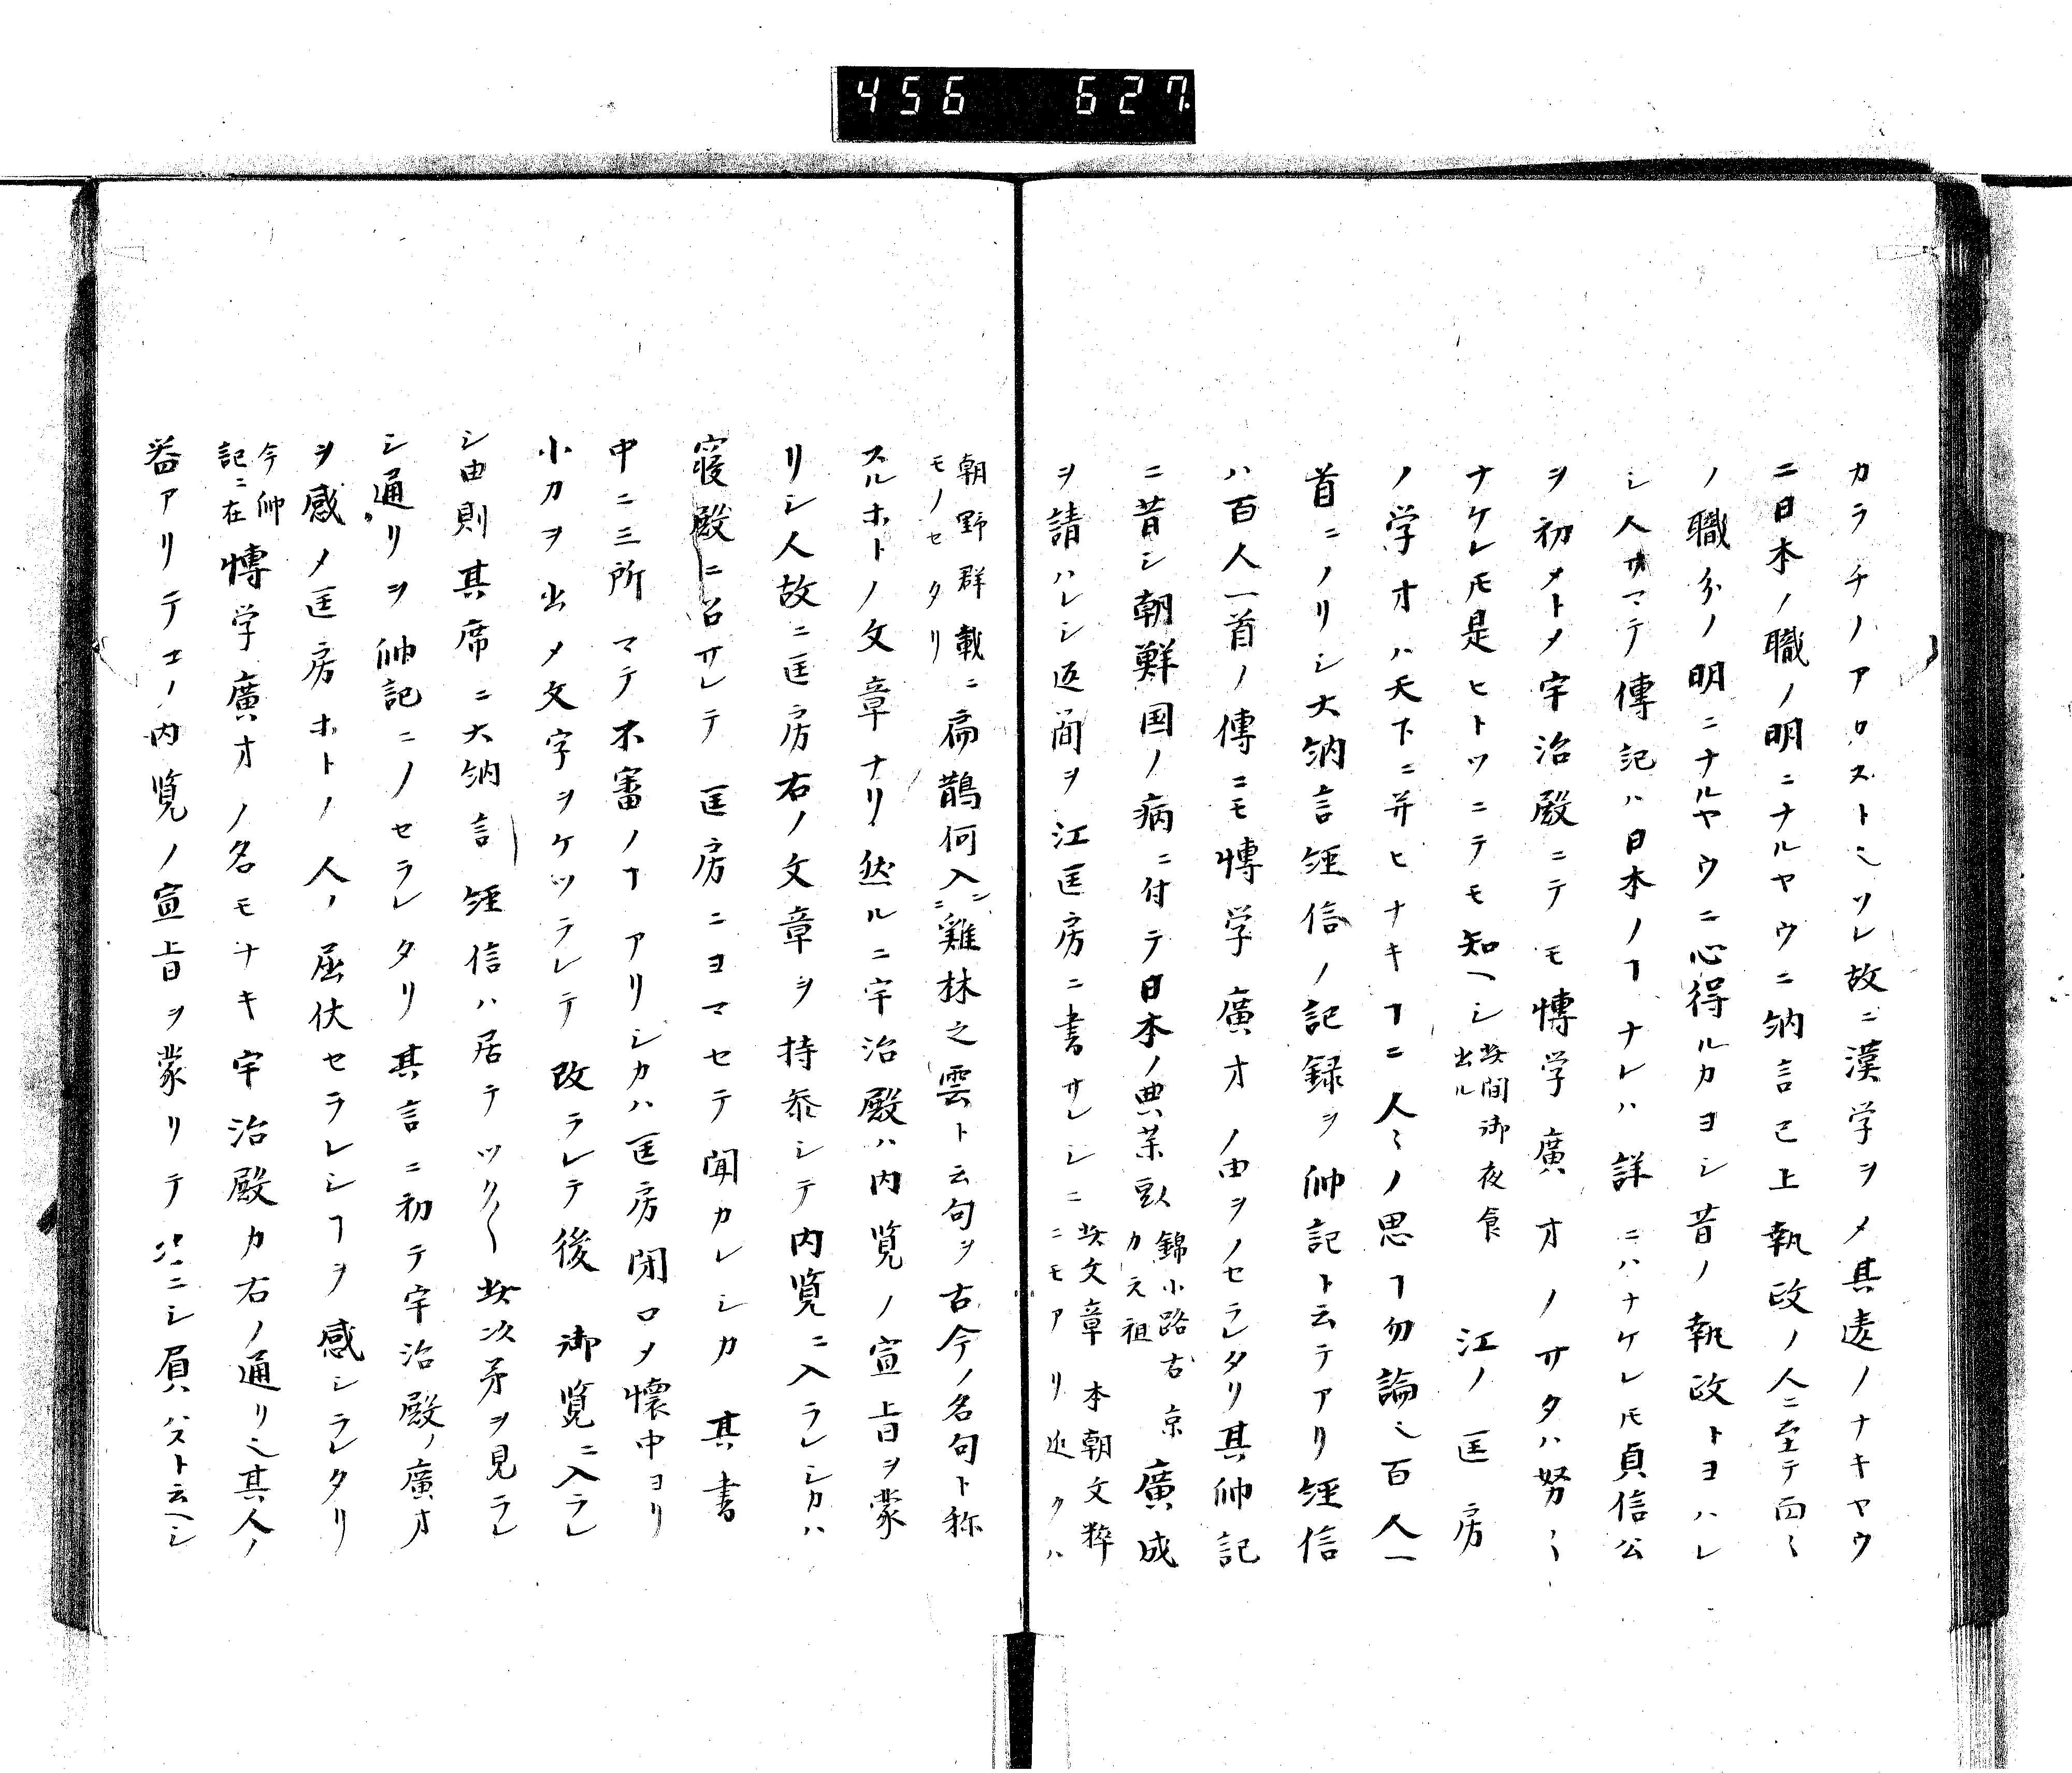 456 627
カラチノアロストヒツレ故ニ漢学ヲメ其遠ノナキヤウ
ニ日本ノ職ノ明ニナルヤウニ納言已上執政ノ人ニ至テ面〻
ノ職分ノ明ニナルヤウニ心得ルカヨシ昔ノ執政トヨハレ
シ人サマテ傳記ハ日本ノヿナレハ詳ニハナケレ𪜈貞信公
ヲ初メトメ宇治殿ニテモ博学廣才ノサタハ努〻
ナケレ𪜈是ヒトツニテモ知ヘシ此間御夜食出ル江ノ匡房
ノ学才ハ天下ニ并ヒナキヿニ人〻ノ思フ勿論也百人一
首ニノリシ大納言経信ノ記録ヲ帥記ト云テアリ経信
ハ百人一首ノ傳ニモ博学廣才ノ由ヲノセラレタリ其帥記
ニ昔シ朝鮮国ノ病ニ付テ日本ノ典薬頭錦小路古京カ元祖廣成
ヲ請ハレシ返簡ヲ江匡房ニ書サレシニ此文章本朝文粋ニモアリ近クハ
朝野群載ニ扁鵲何入ニ雞林之雲ト云句ヲ古今ノ名句ト称
モノセタリ
スルホトノ文章ナリ然ルニ宇治殿ハ内覧ノ宣旨ヲ蒙
リシ人故ニ匡房右ノ文章ヲ持参シテ内覧ニ入ラレシカハ
寝殿ニ召サレテ匡房ニヨマセテ聞カレシカ其書
中ニ三所マテ不審ノヿアリシカハ匡房閉口メ懐中ヨリ
小刀ヲ出メ文字ヲケツラレテ改ラレテ後御覧ニ入ラレ
シ由則其席ニ大納言経信ハ居テツク〱此次第ヲ見ラレ
シ通リヲ帥記ニノセラレタリ其言ニ初テ宇治殿ノ廣才
ヲ感メ匡房ホトノ人ノ屈伏セラレシヿヲ感シラレタリ
今帥記ニ在博学廣才ノ名モナキ宇治殿カ右ノ通リ也其人ノ
器アリテエノ内覧ノ宣旨ヲ蒙リテ ニシ負ハスト云ヘシ